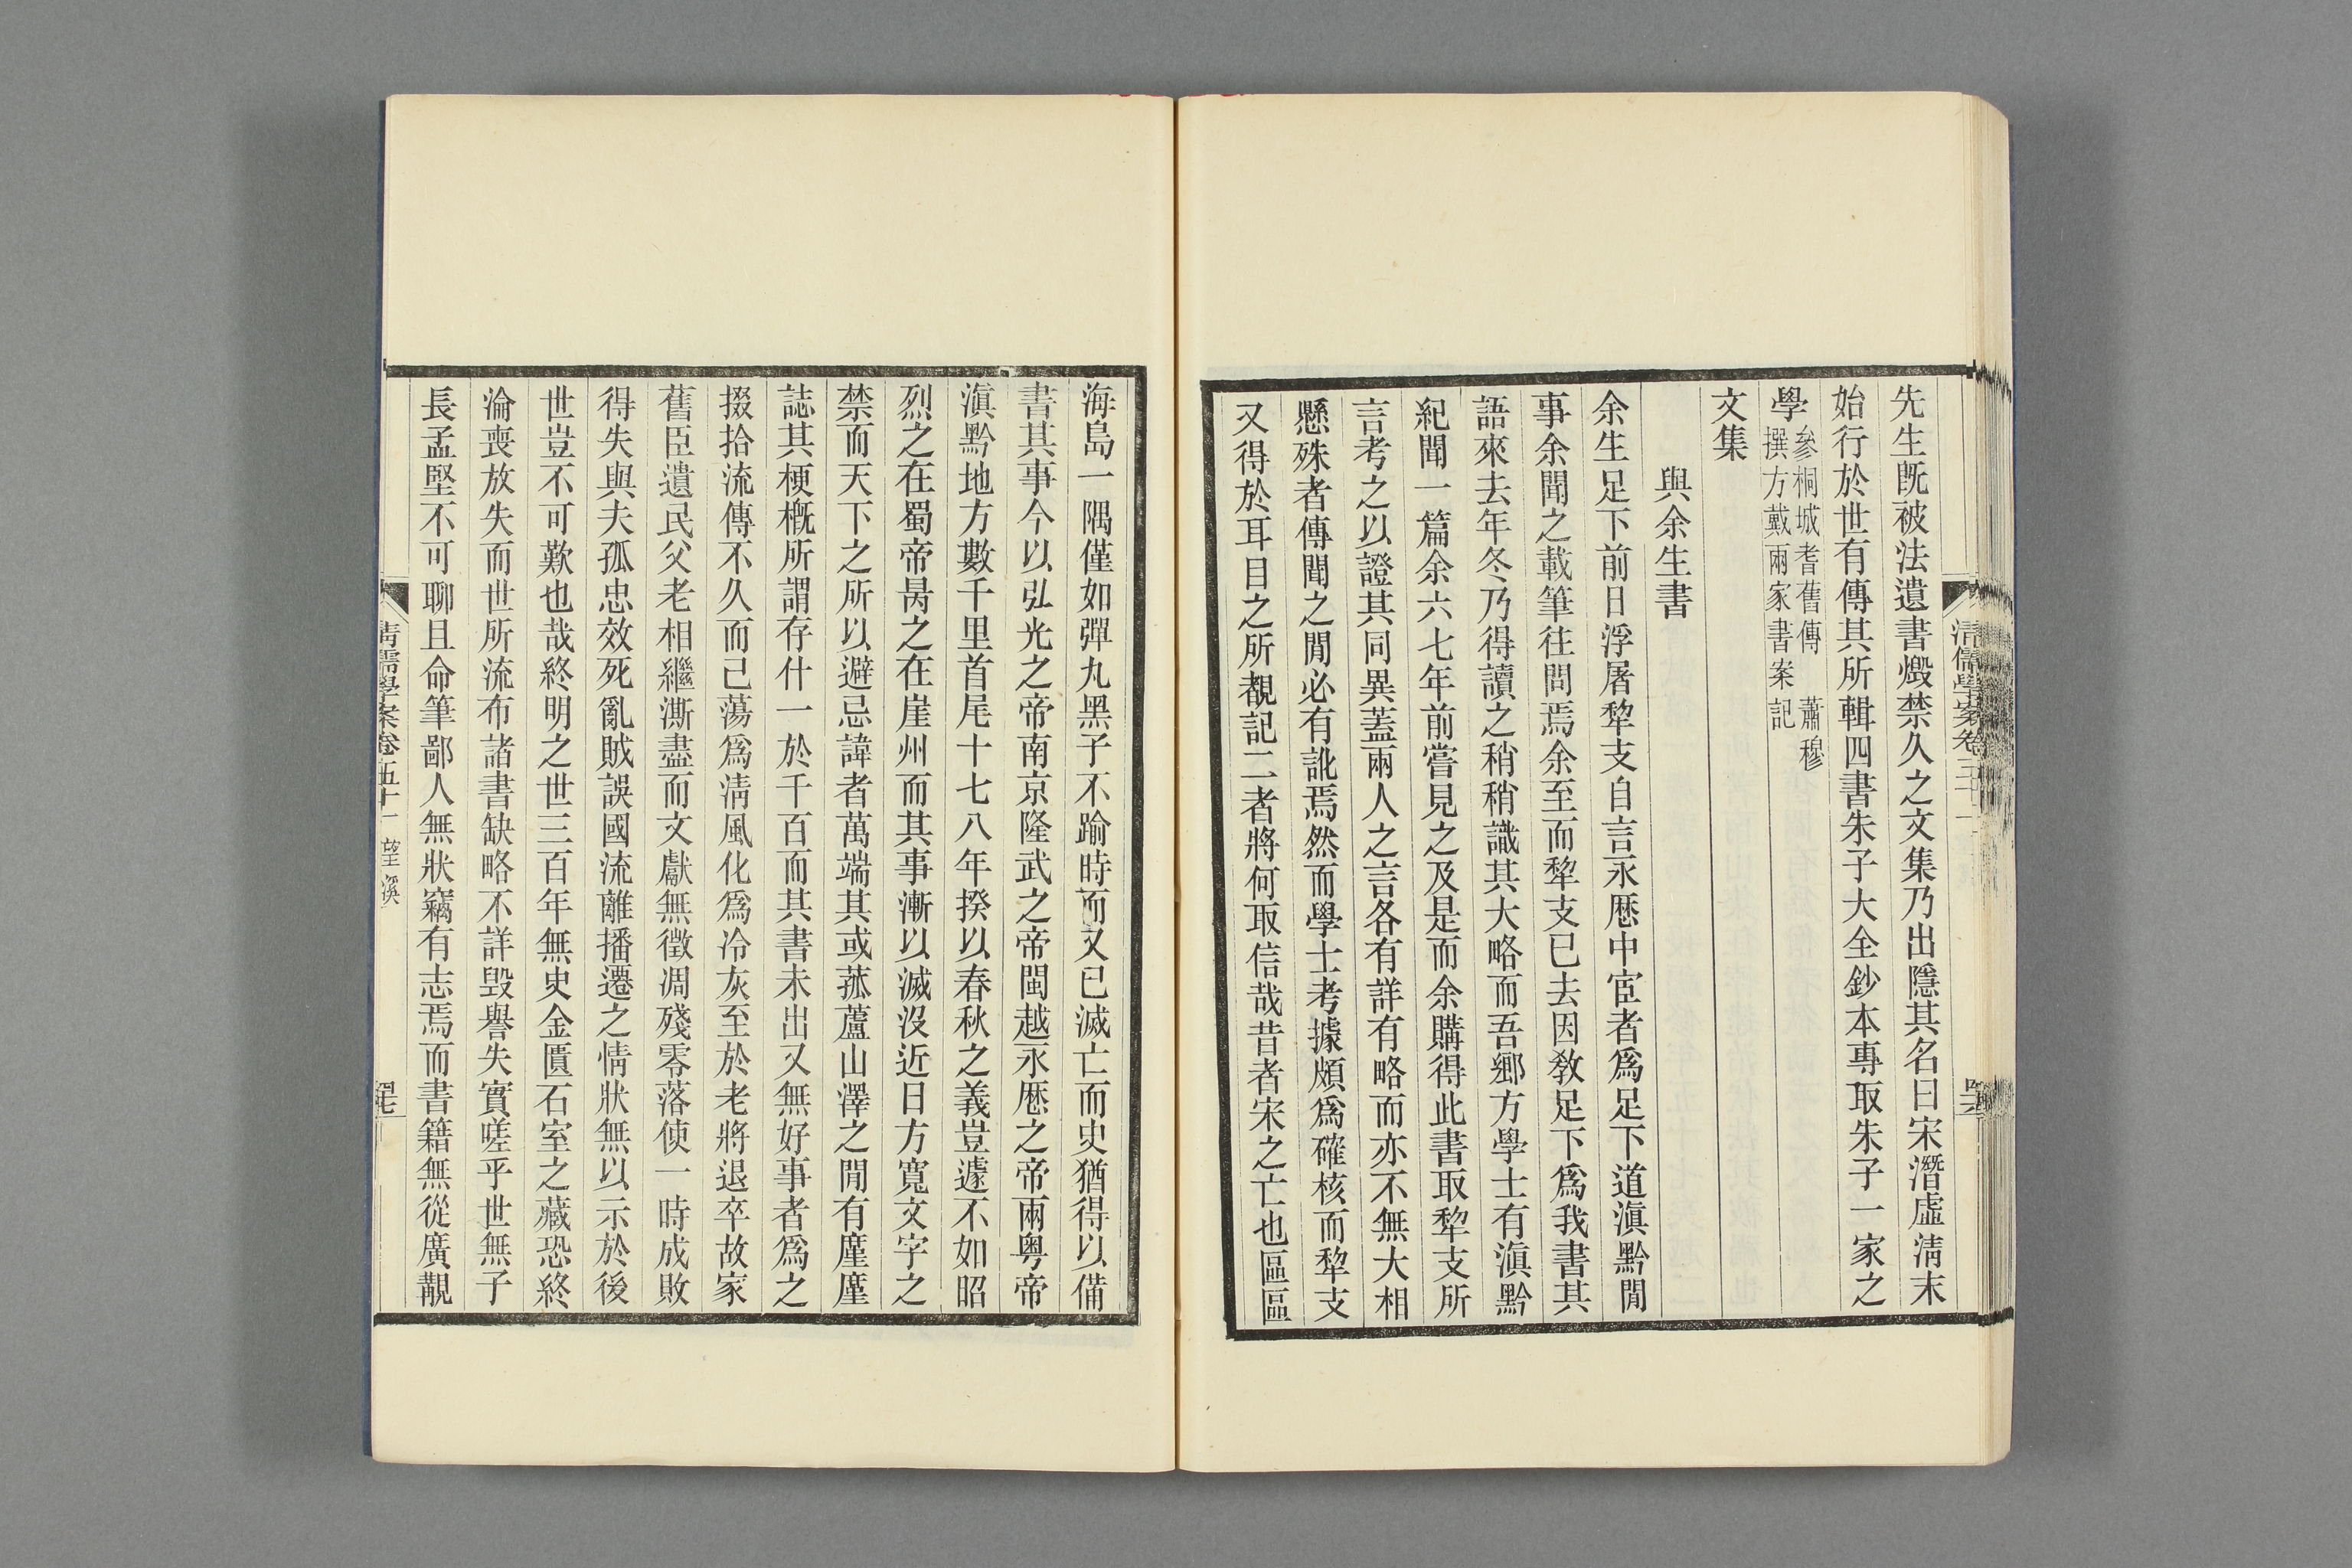 先生旣被法遺書燬禁久之文集乃出隱其名曰宋潛虛淸末
始行於世有傳其所輯四書朱子大全鈔本專取朱子一家之
學參桐城耆舊傳　蕭穆
撰方戴兩家書案記
文集
與余生書
余生足下前日浮屠犂支自言永厯中宦者爲足下道滇黔閒
事余聞之載筆往問焉余至而犂支已去因敎足下爲我書其
語來去年冬乃得讀之稍稍識其大略而吾鄕方學士有滇黔
紀聞一篇余六七年前嘗見之及是而余購得此書取犂支所
言考之以證其同異蓋兩人之言各有詳有略而亦不無大相
懸殊者傳聞之閒必有訛焉然而學士考據頗爲確核而犂支
又得於耳目之所覩記二者將何取信哉昔者宋之亡也區區
海島一隅僅如彈丸黑子不踰時而又已滅亡而史猶得以備
書其事今以弘光之帝南京隆武之帝閩越永厯之帝兩粤帝
滇黔地方數千里首尾十七八年揆以春秋之義豈遽不如昭
烈之在蜀帝昺之在崖州而其事漸以滅沒近日方寬文字之
禁而天下之所以避忌諱者萬端其或菰蘆山澤之閒有廑廑
誌其梗槪所謂存什一於千百而其書未出又無好事者爲之
掇拾流傳不久而已蕩爲淸風化爲冷灰至於老將退卒故家
舊臣遺民父老相繼澌盡而文獻無徵凋殘零落使一時成敗
得失與夫孤忠效死亂賊誤國流離播遷之情狀無以示於後
世豈不可歎也哉終明之世三百年無史金匱石室之藏恐終
淪喪放失而世所流布諸書缺略不詳毀譽失實嗟乎世無子
長孟堅不可聊且命筆鄙人無狀竊有志焉而書籍無從廣覯
淸儒學案卷五十一　望溪